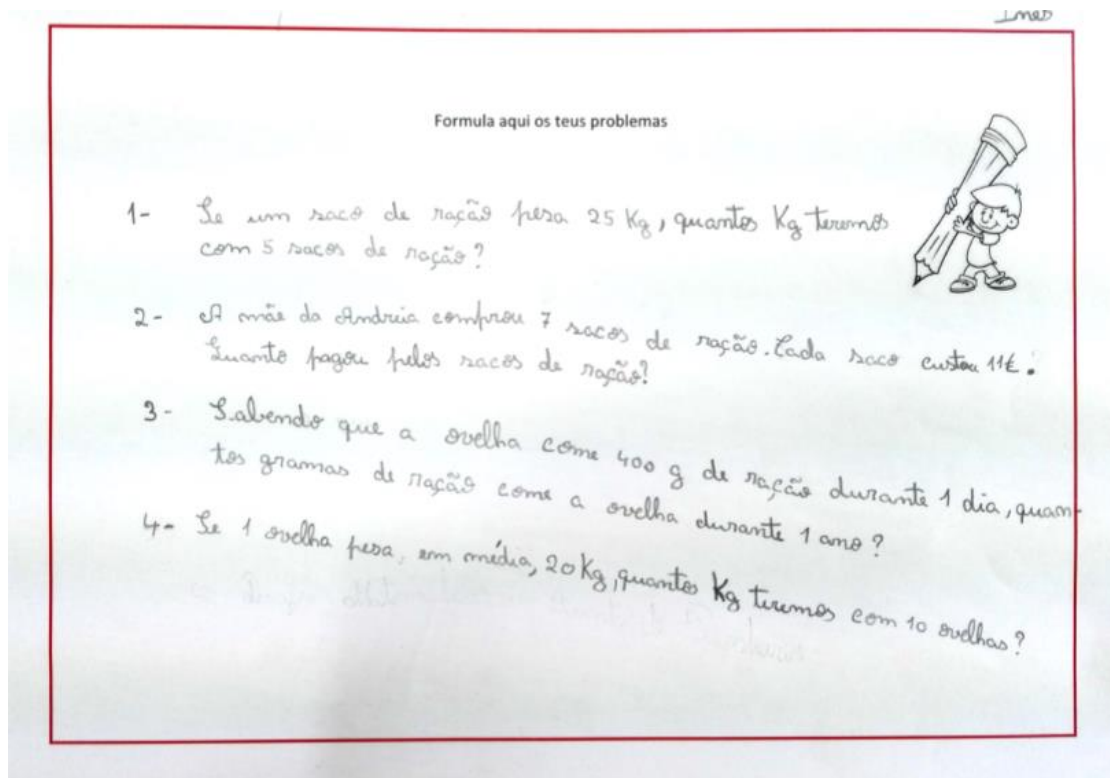 Inês
Formula aqui os teus problemas
1- Se um saco de ração pesa 25 Kg, quantos Kg teremos
com 5 sacos de ração?
2- A mãe da Andreia comprou 7 sacos de ração. Cada saco custou 11€.
Quanto pagou pelos sacos de ração?
3- Sabendo que a ovelha come 400 g de ração durante 1 dia, quan-
tos gramas de ração come a ovelha durante 1 ano?
4- Se 1 ovelha pesa, em média, 20 Kg, quantos Kg teremos com 10 ovelhas?